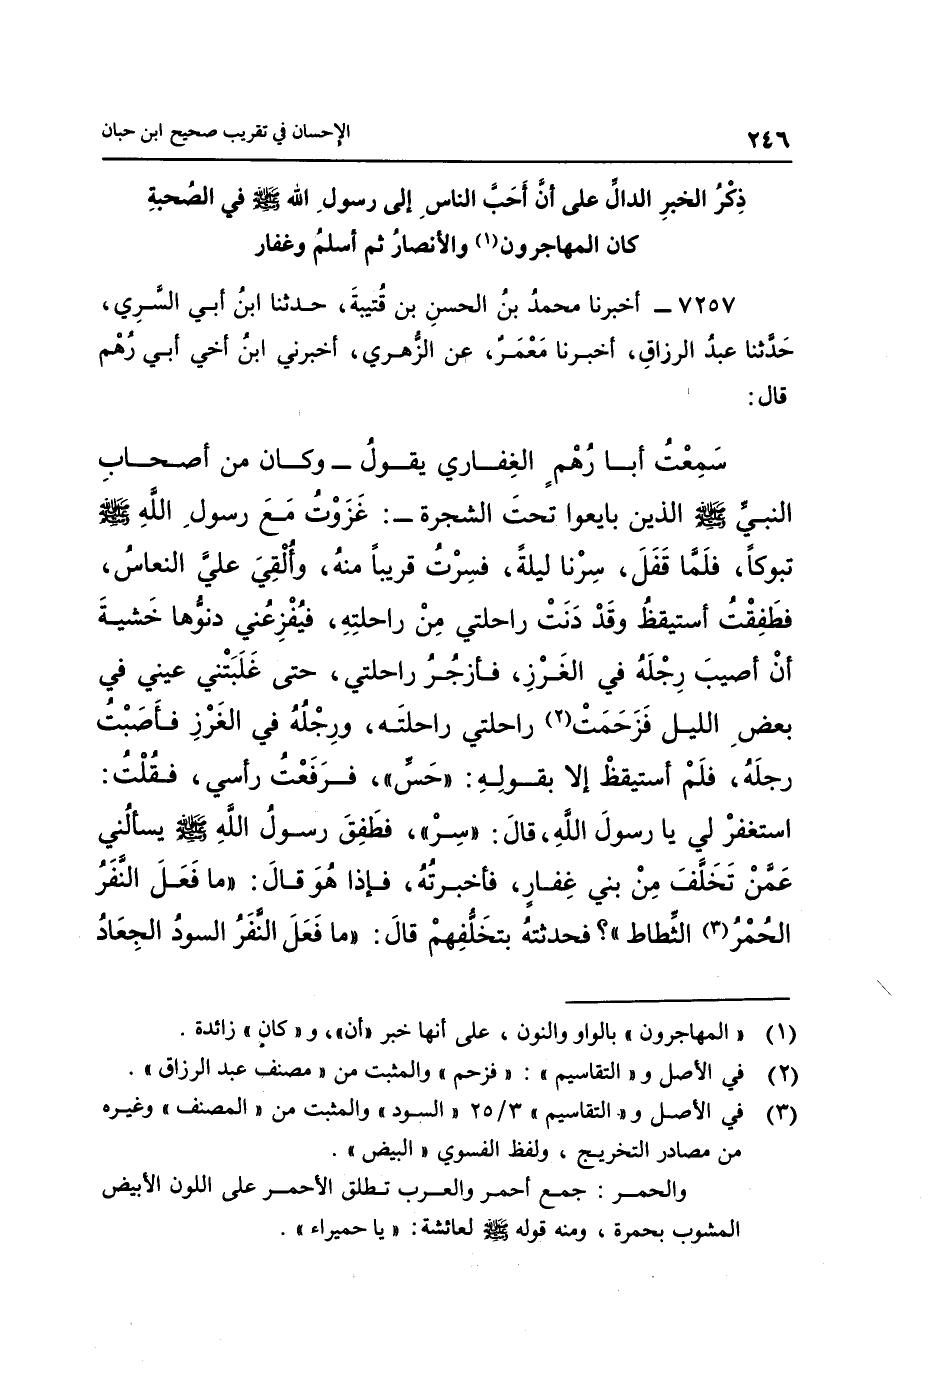 ٢٤٦ الإحسان في تقريب صحيح ابن حبان
ذِكْرُ الخبرِ الدالِّ على أنَّ أَحَبَّ الناسِ إلى رسولِ الله ﷺ في الصُحبةِ
كان المهاجرون(١) والأنصارُ ثم أسلمُ وغفار
٧٢٥٧ ـ أخبرنا محمدُ بنُ الحسنِ بن قُتيبةَ، حدثنا ابنُ أبي السَّرِي،
حَدَّثنا عبدُ الرزاقِ، أخبرنا مَعْمَرٌ، عن الزُّهري، أخبرني ابنُ أخي أبي رُهْم
قال:
سَمِعْتُ أبا رُهْمٍ الغِفاري يقولُ ـ وكان من أصحابِ
النبيِّ ﷺ الذين بايعوا تحتَ الشجرة ـ: غَزَوْتُ مَعَ رسولِ اللَّهِ ﷺ
تبوكاً، فلَمَّا قَفَلَ، سِرْنا ليلةً، فسِرْتُ قريباً منهُ، وأُلْقِيَ عليَّ النعاسُ،
فطَفِقْتُ أستيقظُ وقَدْ دَنَتْ راحلتي مِنْ راحلتِهِ، فيُفْزِعُني دنوُّها خَشيةَ
أنْ أصيبَ رِجْلَهُ في الغَرْزِ، فأزجُرُ راحلتي، حتى غَلَبَتْني عيني في
بعضِ الليل فَزَحَمَتْ(٢) راحلتي راحلتَه، ورِجْلُهُ في الغَرْزِ فأصَبْتُ
رجلَهُ، فلَمْ أستيقظْ إلا بقولِهِ: «حَسِّ»، فرَفَعْتُ رأسي، فقُلْتُ:
استغفرْ لي يا رسولَ اللَّهِ، قالَ: «سِرْ»، فطَفِقَ رسولُ اللَّهِ ﷺ يسألُني
عَمَّنْ تَخَلَّفَ مِنْ بني غِفارٍ، فأخبرتُهُ، فإذا هُوَ قالَ: «ما فَعَلَ النَّفَرُ
الحُمْرُ(٣) الثِّطاط»؟ فحدثتهُ بتخَلُّفِهِمْ قالَ: «ما فَعَلَ النَّفَرُ السودُ الجِعَادُ
(١) «المهاجرون» بالواو والنون، على أنها خبر «أن»، و«كان» زائدة.
(٢) في الأصل و«التقاسيم»: «فزحم» والمثبت من «مصنف عبد الرزاق».
(٣) في الأصل و«التقاسيم» ٢٥/٣ «السود» والمثبت من «المصنف» وغيره
من مصادر التخريج، ولفظ الفسوي «البيض».
والحمر: جمع أحمر والعرب تطلق الأحمر على اللون الأبيض
المشوب بحمرة، ومنه قوله ﷺ لعائشة: «يا حميراء».